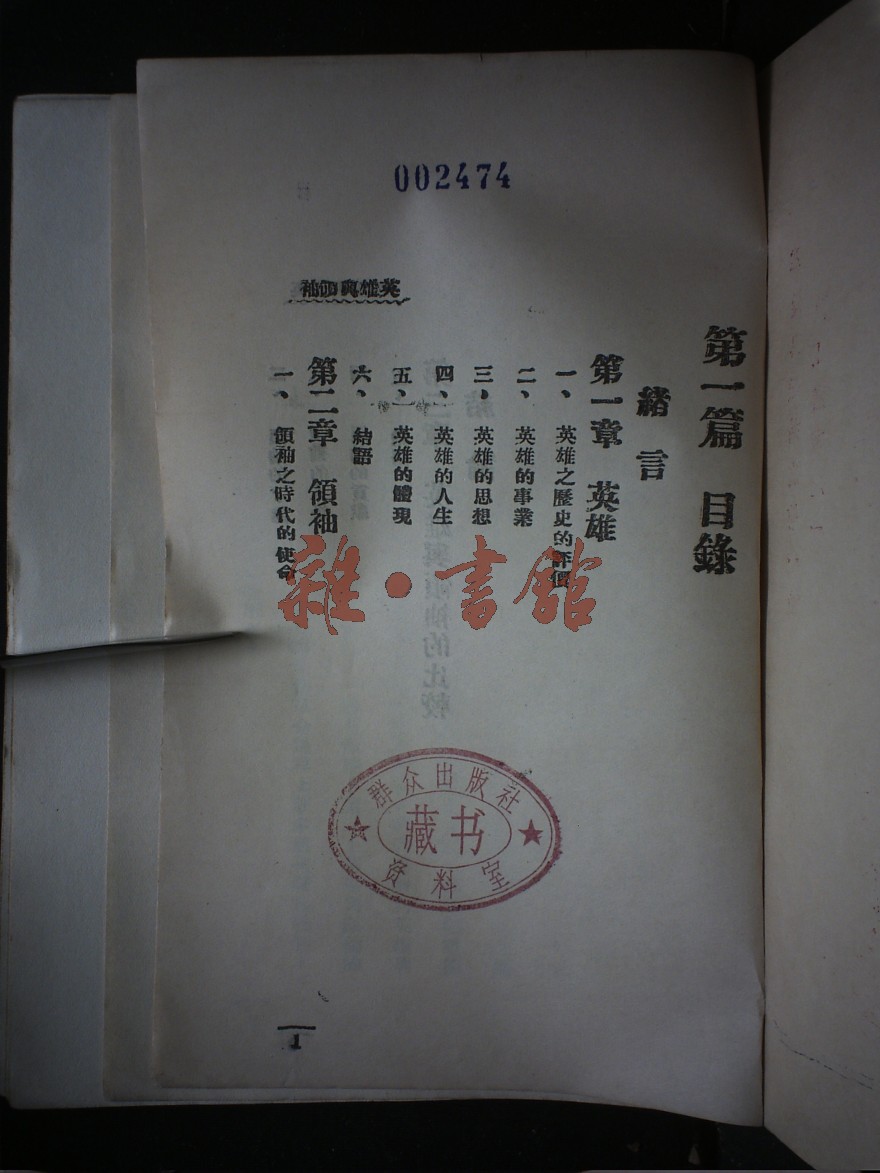 002474
英雄與領袖
第一篇 目錄
緒言
第一章 英雄
一、英雄之歷史的評價
二、英雄的事業
三、英雄的思想
四、英雄的人生
五、英雄的體現
六、結語
第二章 領袖
一、領袖之時代的使命
雜·書館
群众出版社
藏书
资料室
1